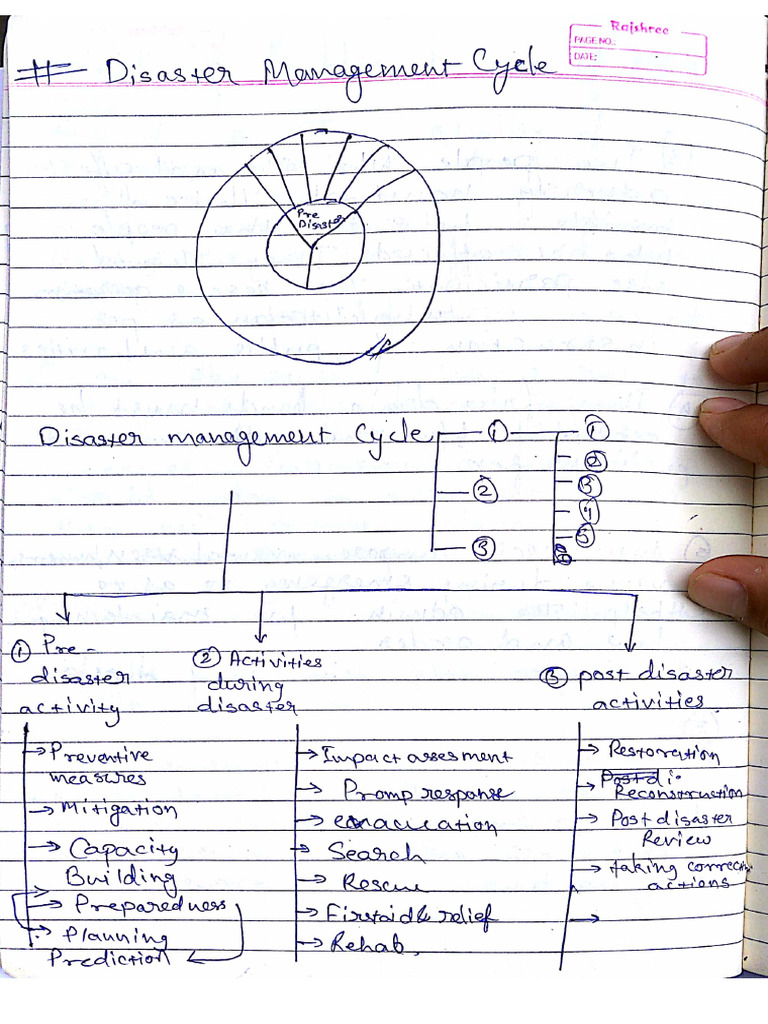 Rajshree
PAGE NO.:
DATE:
# Disaster Management Cycle
Pre
Disaster
Disaster management Cycle
① ①
②
③
④
⑤
②
③
① Pre-
disaster
activity
② Activities
during
disaster
③ post disaster
activities.
→ Preventive
measures
→ Mitigation
→ Capacity
Building
→ Preparedness
→ Planning
Prediction
→ Impact assesment
→ Promp response
→ evacuation
→ Search
→ Rescue
→ First aid & relief
→ Rehab.
→ Restoration
→ Post di.
Reconstruction
→ Post disaster
Review
→ taking correc
actions
→